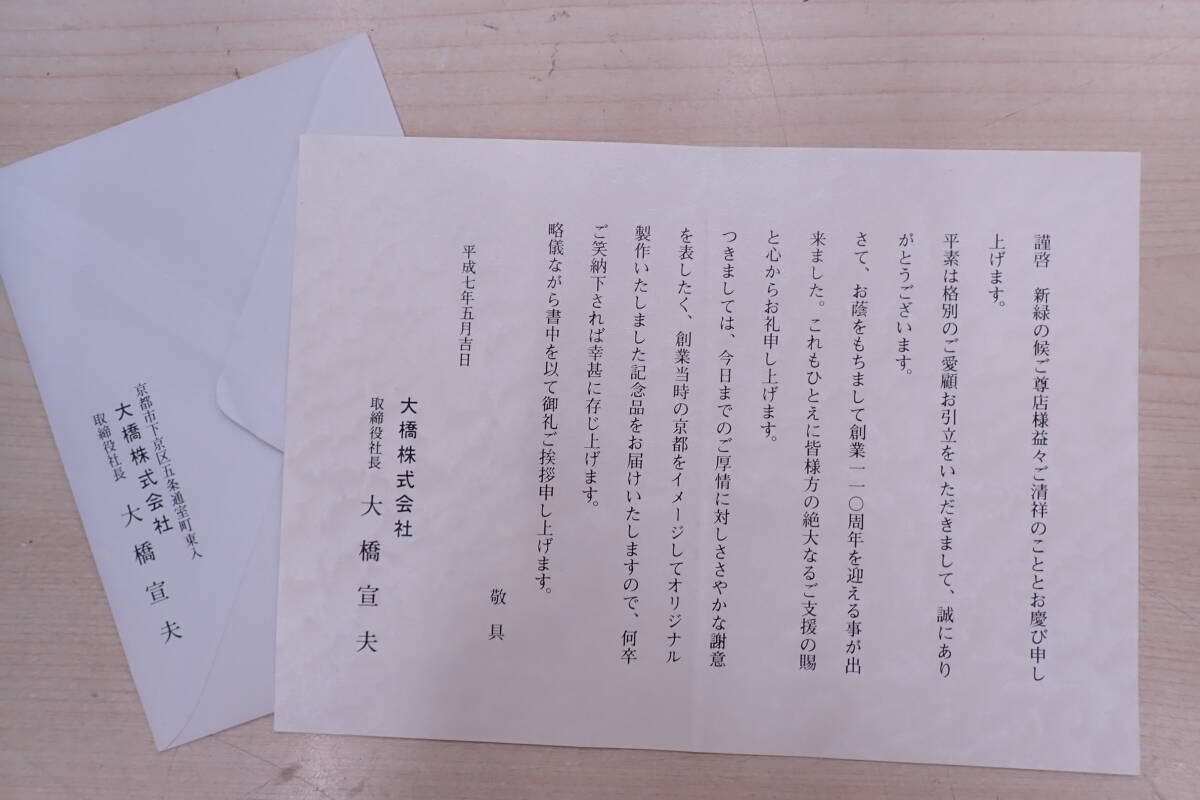 謹啓　新緑の候ご尊店様益々ご清祥のこととお慶び申し
上げます。
平素は格別のご愛顧お引立をいただきまして、誠にあり
がとうございます。
さて、お蔭をもちまして創業一一〇周年を迎える事が出
来ました。これもひとえに皆様方の絶大なるご支援の賜
と心からお礼申し上げます。
つきましては、今日までのご厚情に対しささやかな謝意
を表したく、創業当時の京都をイメージしてオリジナル
製作いたしました記念品をお届けいたしますので、何卒
ご笑納下されば幸甚に存じ上げます。
略儀ながら書中を以て御礼ご挨拶申し上げます。
敬具
平成七年五月吉日
大橋株式会社
取締役社長　大橋宣夫
京都市下京区五条通室町東入
大橋株式会社
取締役社長　大橋宣夫